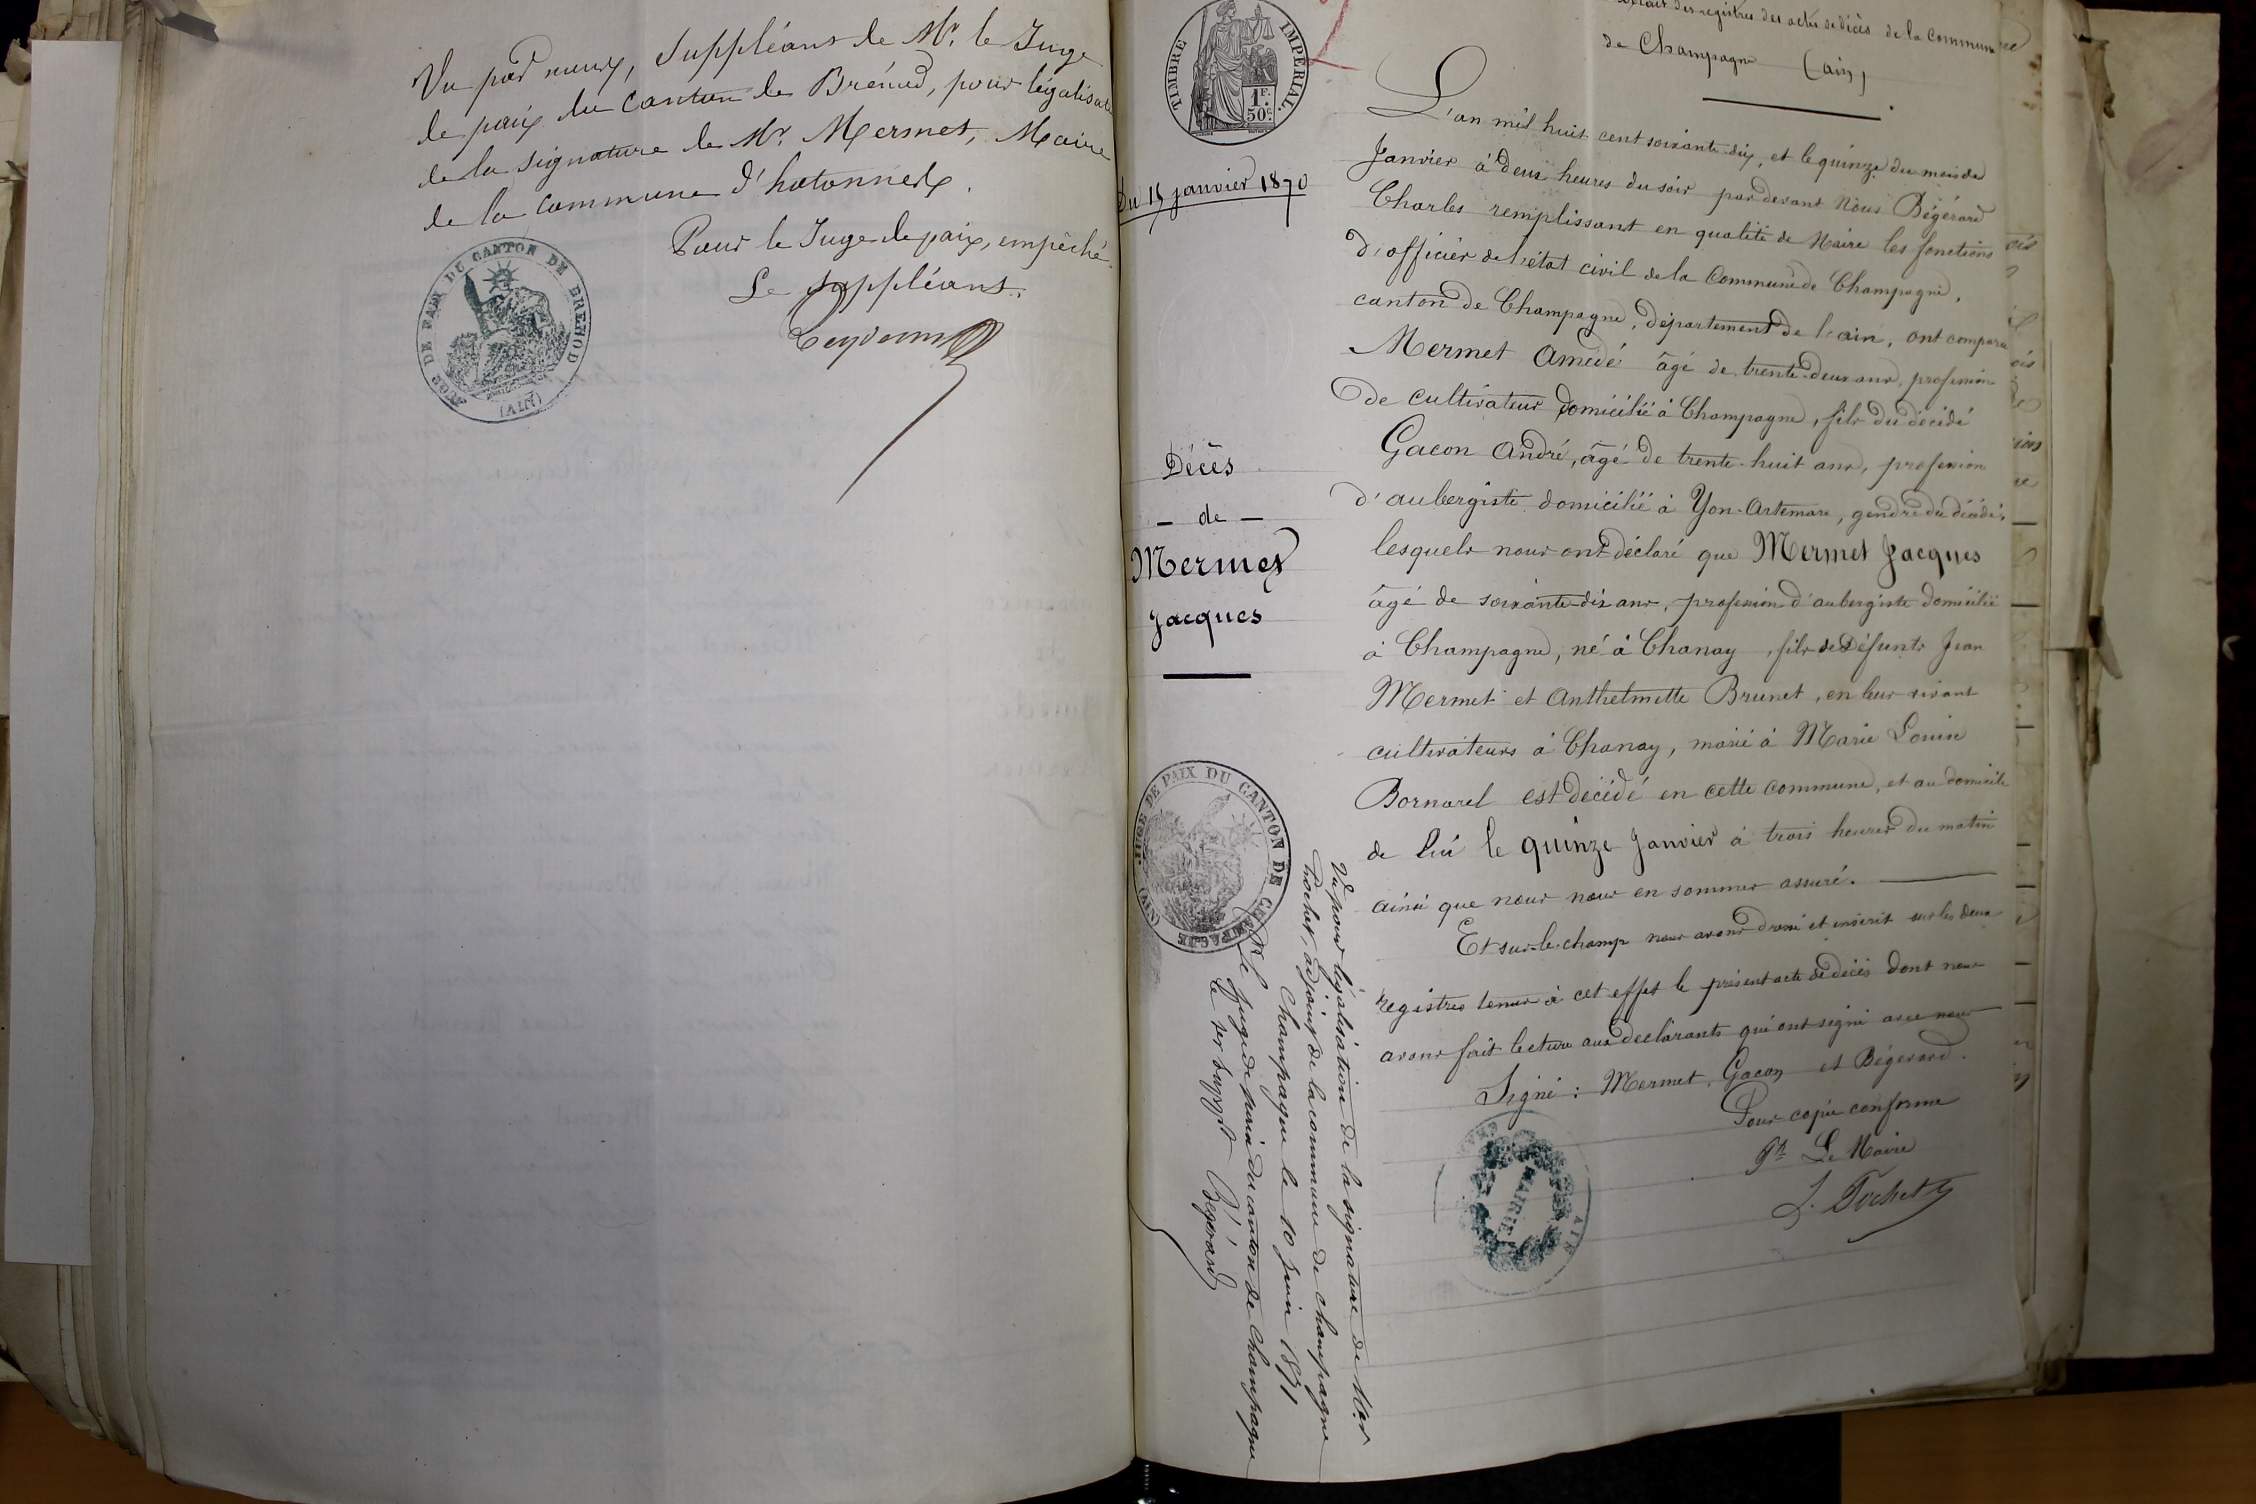 Vu par nous, Suppléant de Mr. le Juge
de paix du Canton de Brénod, pour légalisat
de la signature de Mr Mermet, Maire
de la Commune d'hotonnes.
Pour le Juge de paix, empêché.
Le Suppléant.
JUGE DE PAIX DU CANTON DE BRENOD
(AIN)
TIMBRE IMPÉRIAL.
1F.
50c.
Du 15 janvier 1870
Décès
- de -
Mermet
Jacques
JUGE DE PAIX DU CANTON DE CHAMPAGNE (AIN)
Extrait des registres des actes de décès de la commune
de Champagne (ain)
L'an mil huit cent soixante-dix, et le quinze du mois de
Janvier à deux heures du soir pardevant Nous Bégérard
Charles remplissant en qualité de Maire les fonctions
d'officier de l'état civil de la Commune de Champagne,
canton de Champagne, département de l'ain, ont comparu
Mermet Amedé âgé de trente-deux ans, profession
de cultivateur domicilié à Champagne, fils du décédé
Gacon André, âgé de trente-huit ans, profession
d'aubergiste domicilié à Yon-Artemare, gendre du décédé,
lesquels nous ont déclaré que Mermet Jacques
âgé de soixante-dix ans, profession d'aubergiste domicilié
à Champagne, né à Chanay, fils de Défunts Jean
Mermet et Anthelmette Brunet, en leur vivant
cultivateurs à Chanay, marié à Marie Louise
Bornarel est décédé en cette commune, et au domicile
de lui le quinze Janvier à trois heures du matin
ainsi que nous nous en sommes assuré.
Et sur-le-champ nous avons dressé et inscrit sur les deux
registres tenus à cet effet le présent acte de décès dont nous
avons fait lecture aux déclarants qui ont signé avec nous
Signé : Mermet, Gacon et Bégérard.
Pour copie conforme
Pr Le Maire
L. Pochet
MAIRIE
AIN
Vu pour légalisation de la signature de Mr
Pochet, adjoint de la commune de Champagne
Champagne le 10 juin 1871
Pr le Juge de paix du canton de Champagne
le 1er suppt
Bégérard